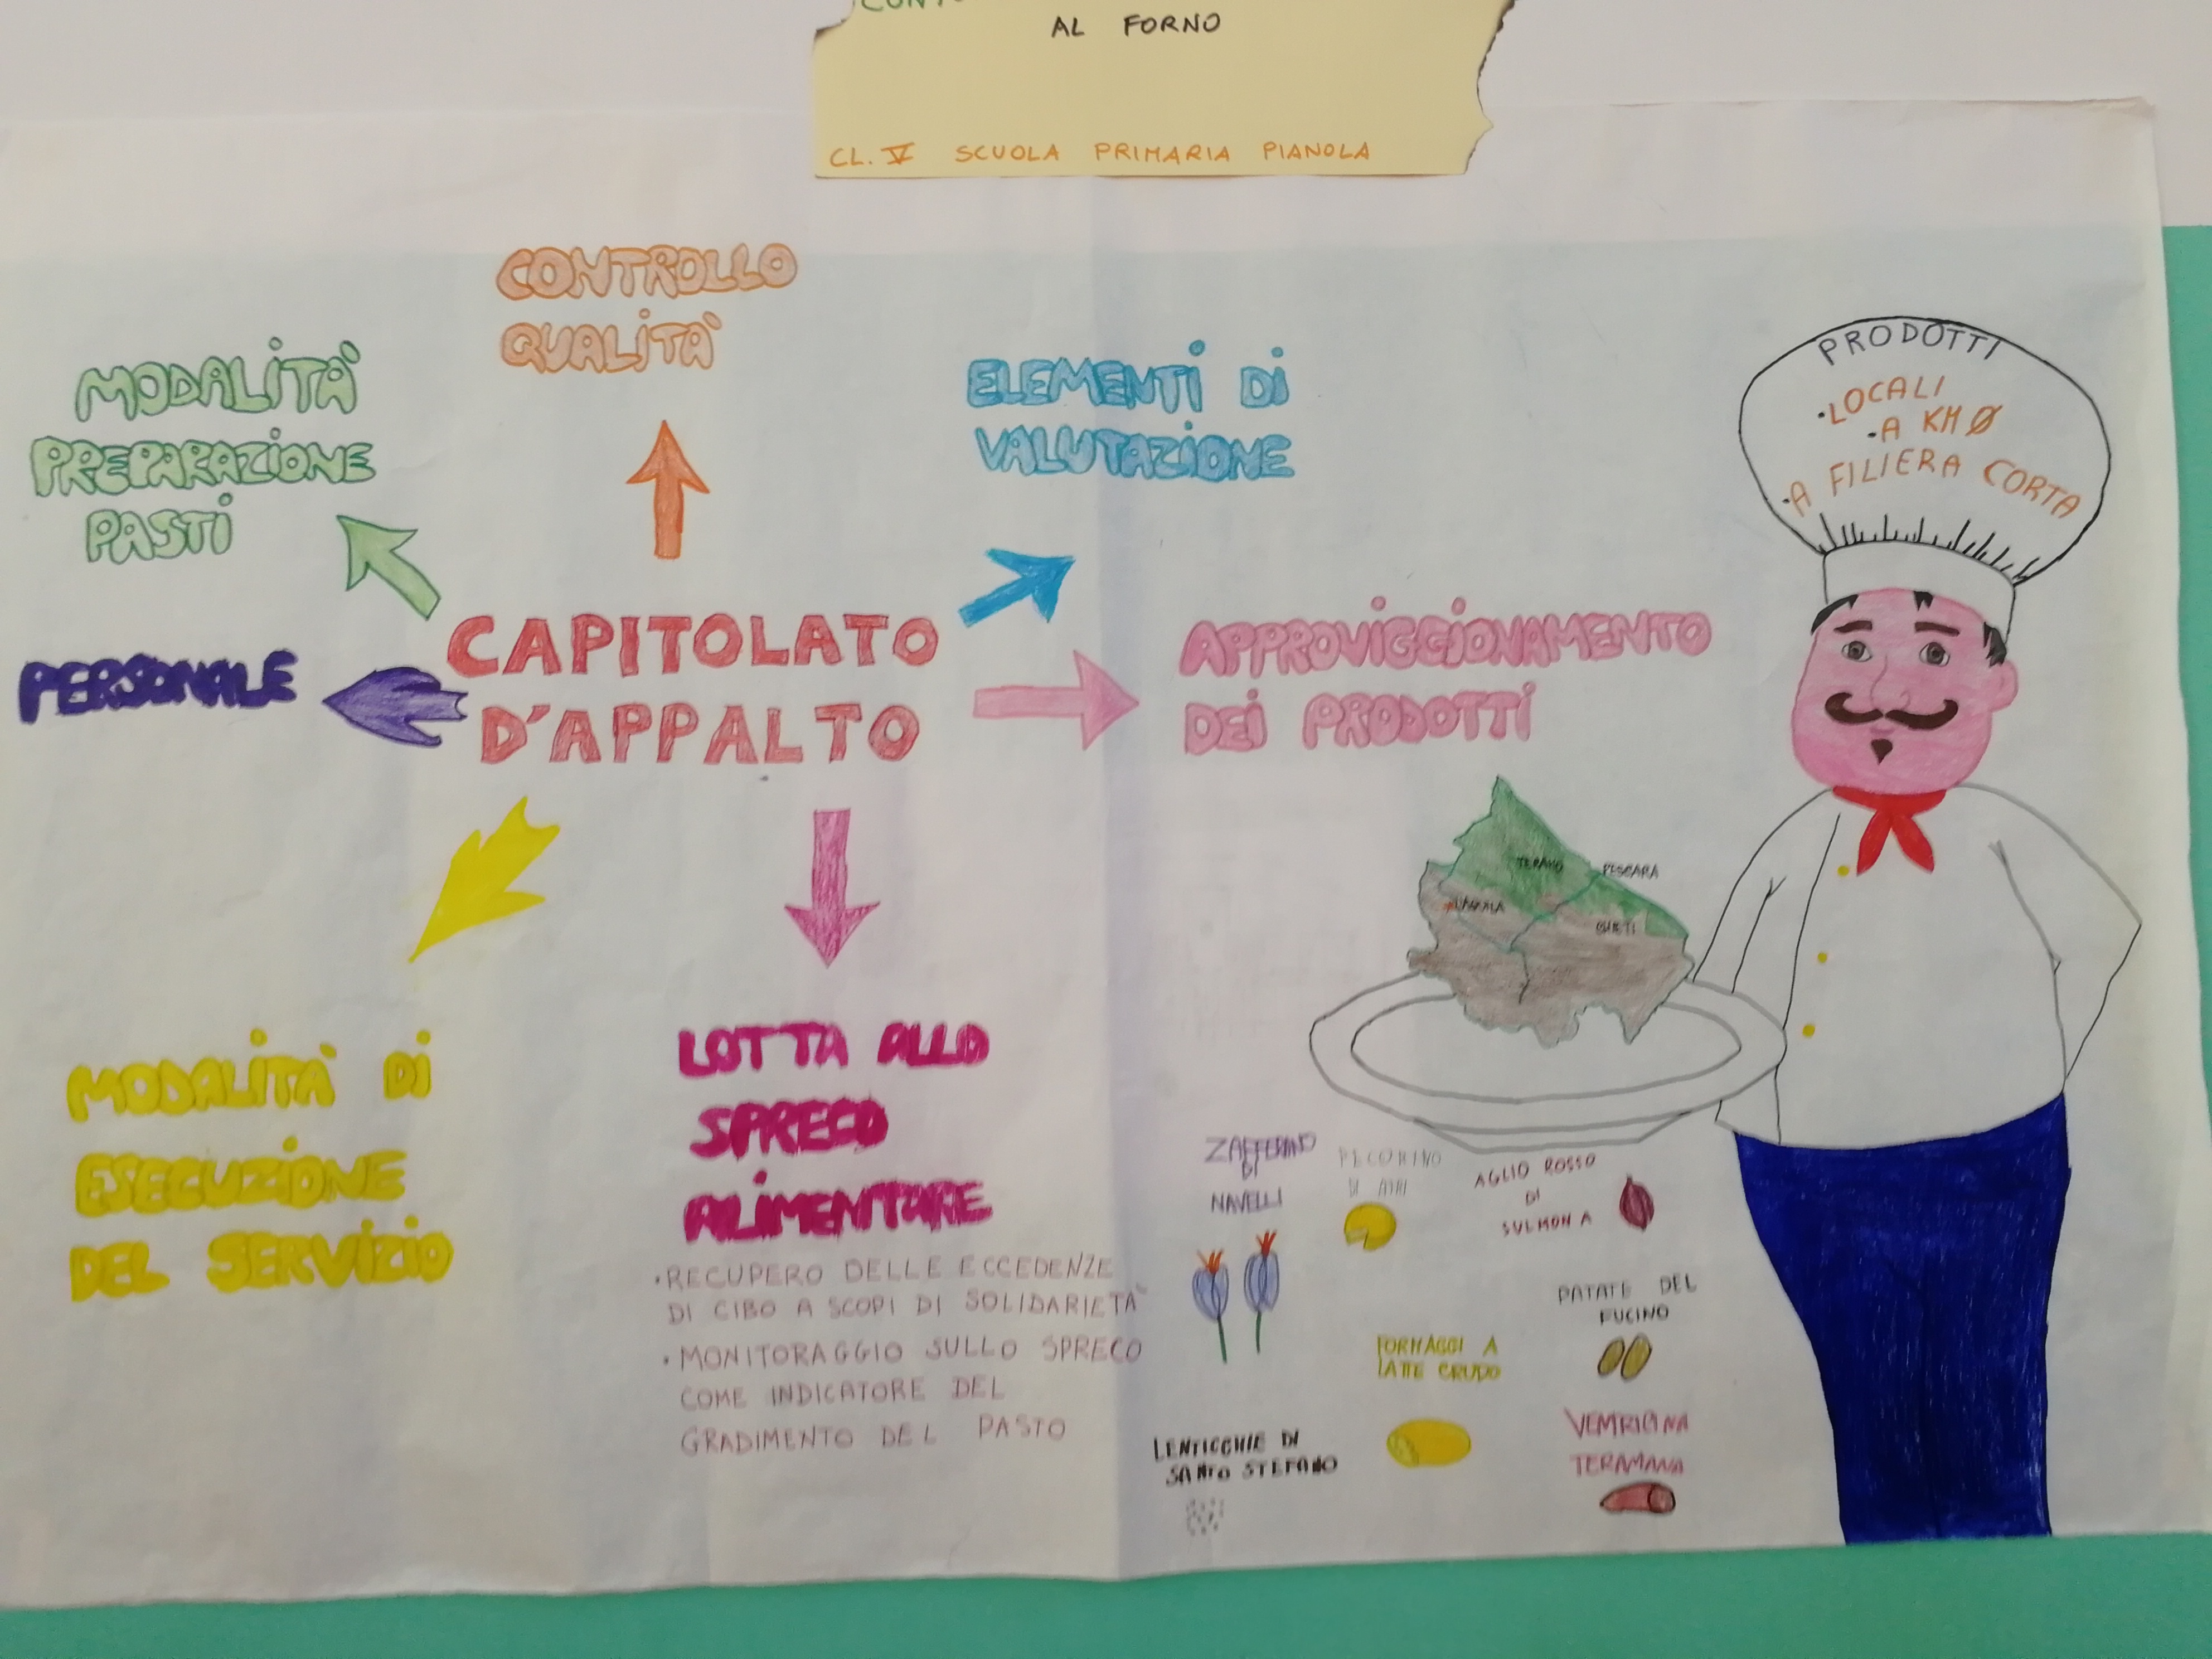 AL FORNO
CL. V SCUOLA PRIMARIA PIANOLA
CONTROLLO
QUALITÀ
MODALITÀ
PREPARAZIONE
PASTI
ELEMENTI DI
VALUTAZIONE
PRODOTTI
•LOCALI
•A KM Ø
•A FILIERA CORTA
CAPITOLATO
D'APPALTO
PERSONALE
APPROVIGGIONAMENTO
DEI PRODOTTI
TERAMO
PESCARA
L'AQUILA
CHIETI
MODALITÀ DI
ESECUZIONE
DEL SERVIZIO
LOTTA ALLO
SPRECO
ALIMENTARE
•RECUPERO DELLE ECCEDENZE
DI CIBO A SCOPI DI SOLIDARIETÀ
•MONITORAGGIO SULLO SPRECO
COME INDICATORE DEL
GRADIMENTO DEL PASTO
ZAFFERANO
DI
NAVELLI
PECORINO
DI ATRI
AGLIO ROSSO
DI
SULMONA
PATATE DEL
FUCINO
FORMAGGI A
LATTE CRUDO
VENTRICINA
TERAMANA
LENTICCHIE DI
SANTO STEFANO